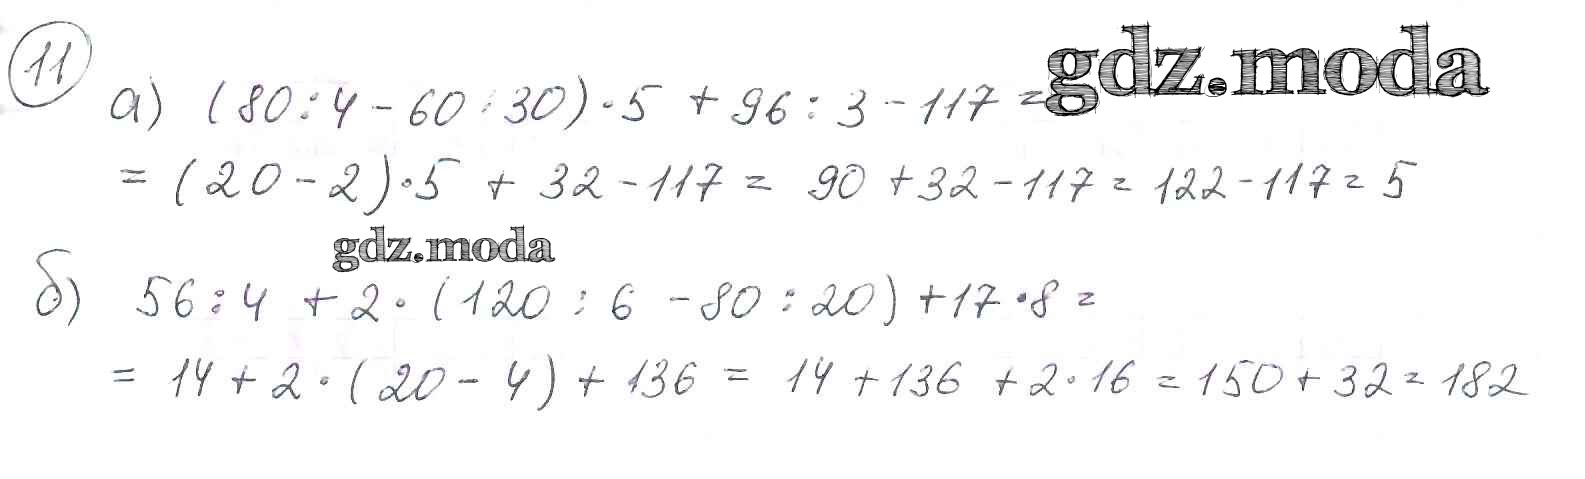 11
а) (80:4 - 60:30)·5 + 96:3 - 117 = gdz.moda
= (20 - 2)·5 + 32 - 117 = 90 + 32 - 117 = 122 - 117 = 5
gdz.moda
б) 56:4 + 2·(120:6 - 80:20) + 17·8 =
= 14 + 2·(20 - 4) + 136 = 14 + 136 + 2·16 = 150 + 32 = 182